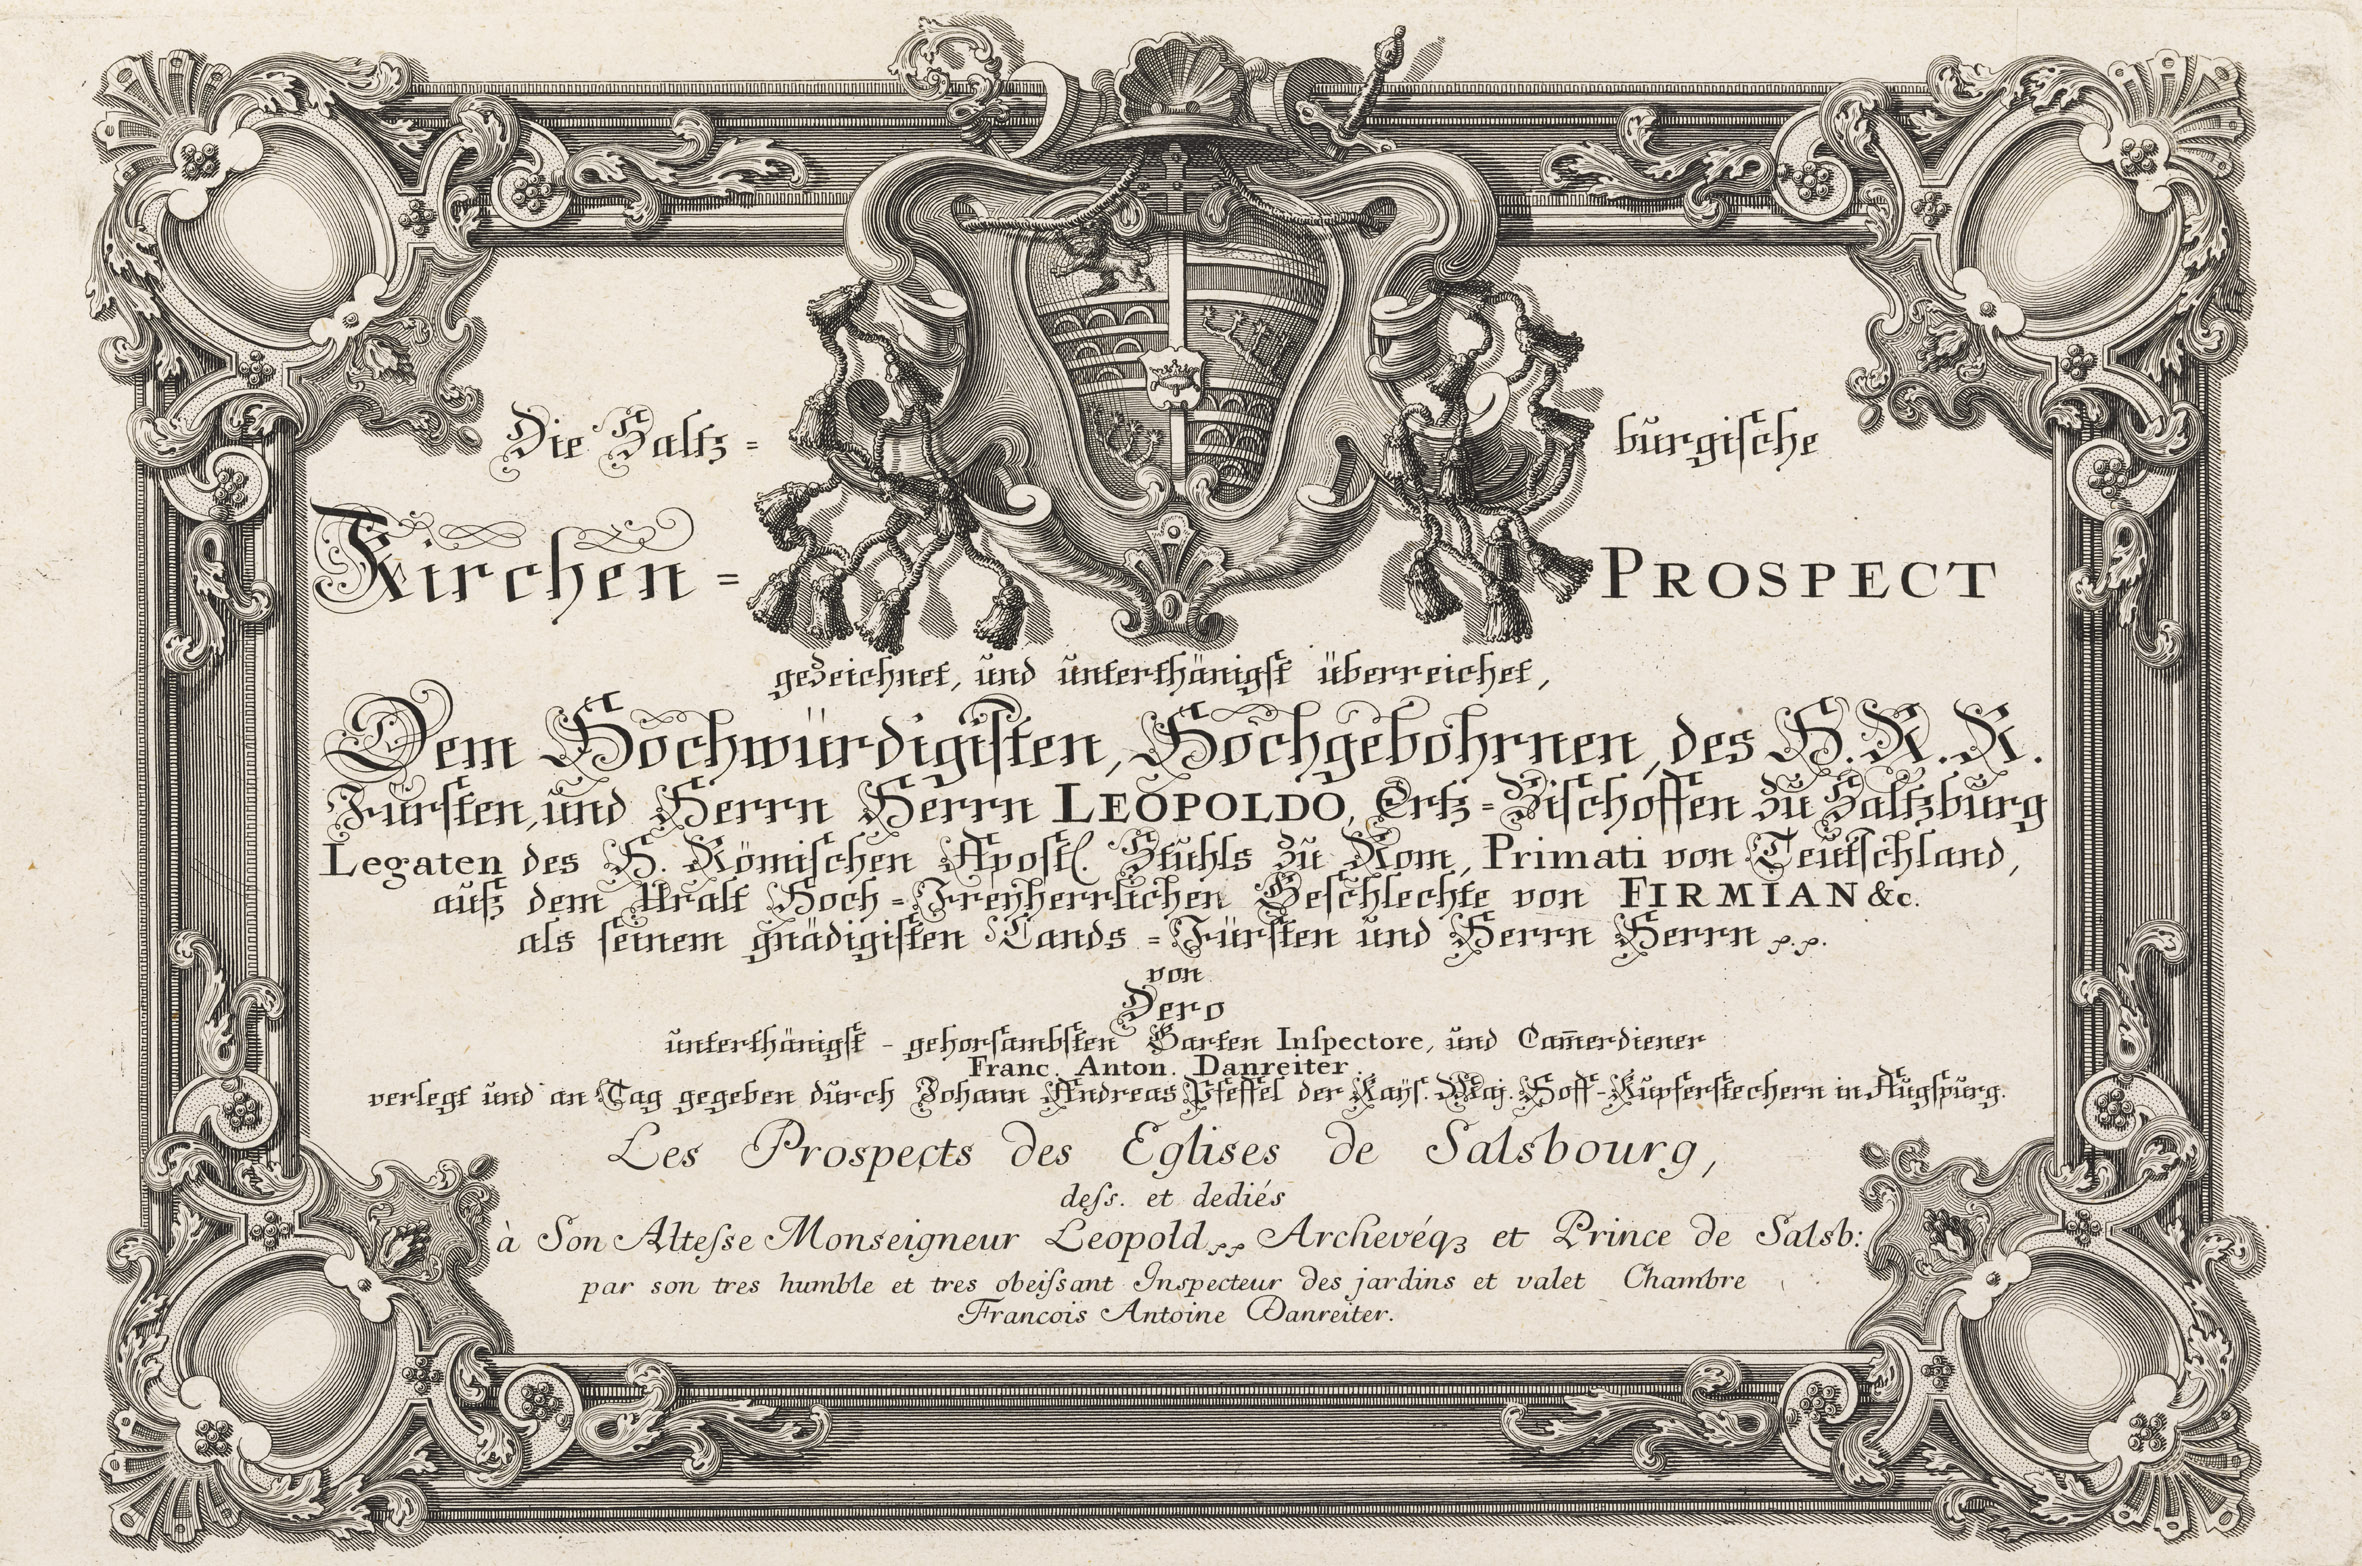 Die Saltz= burgische
Kirchen= PROSPECT
gezeichnet, und unterthänigst überreichet,
Dem Hochwürdigisten, Hochgebohrnen, des H. R. R.
Fürsten, und Herrn Herrn LEOPOLDO, Ertz=Bischoffen zu Saltzburg
Legaten des H. Römischen Apostl. Stuhls zu Rom, Primati von Teutschland,
auß dem Uralt Hoch=Freyherrlichen Geschlechte von FIRMIAN &c.
als seinem gnädigisten Lands=Fürsten und Herrn Herrn p.p.
von
Dero
unterthänigst - gehorsambsten Garten Inſpectore, und Cam̄erdiener
Franc. Anton. Danreiter.
verlegt und an Tag gegeben durch Johann Andreas Pfeffel der Kayſ. Maj. Hoff-Kupferstechern in Augſpurg.
Les Prospects des Eglises de Salsbourg,
deſs. et dediés
à Son Alteſse Monseigneur Leopold pp Archevéqꝫ et Prince de Salsb:
par son tres humble et tres obeiſsant Inspecteur des jardins et valet Chambre
Francois Antoine Danreiter.